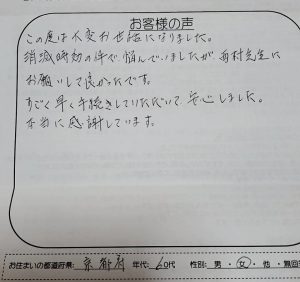 お客様の声
この度は大変お世話になりました。
消滅時効の件で悩んでいましたが西村先生に
お願いして良かったです。
すごく早く手続きしていただいて安心しました。
本当に感謝しています。
お住まいの都道府県: 京都府 年代: 60代 性別: 男・女・他・無回答